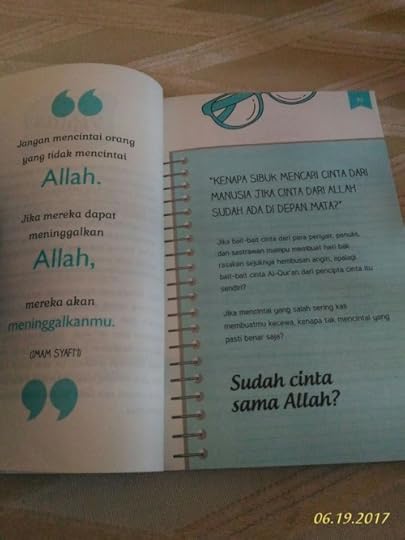 Jangan mencintai orang
yang tidak mencintai
Allah.
Jika mereka dapat
meninggalkan
Allah,
mereka akan
meninggalkanmu.
(IMAM SYAFI'I)
"KENAPA SIBUK MENCARI CINTA DARI
MANUSIA JIKA CINTA DARI ALLAH
SUDAH ADA DI DEPAN MATA?"
Jika bait-bait cinta dari para penyair, penulis,
dan sastrawan mampu membuat hari bak
rasakan sejuknya hembusan angin, apalagi
bait-bait cinta Al-Qur'an dari pencipta cinta itu
sendiri?
Jika mencintai yang salah sering kas
membuatmu kecewa, kenapa tak mencintai yang
pasti benar saja?
Sudah cinta
sama Allah?
06.19.2017